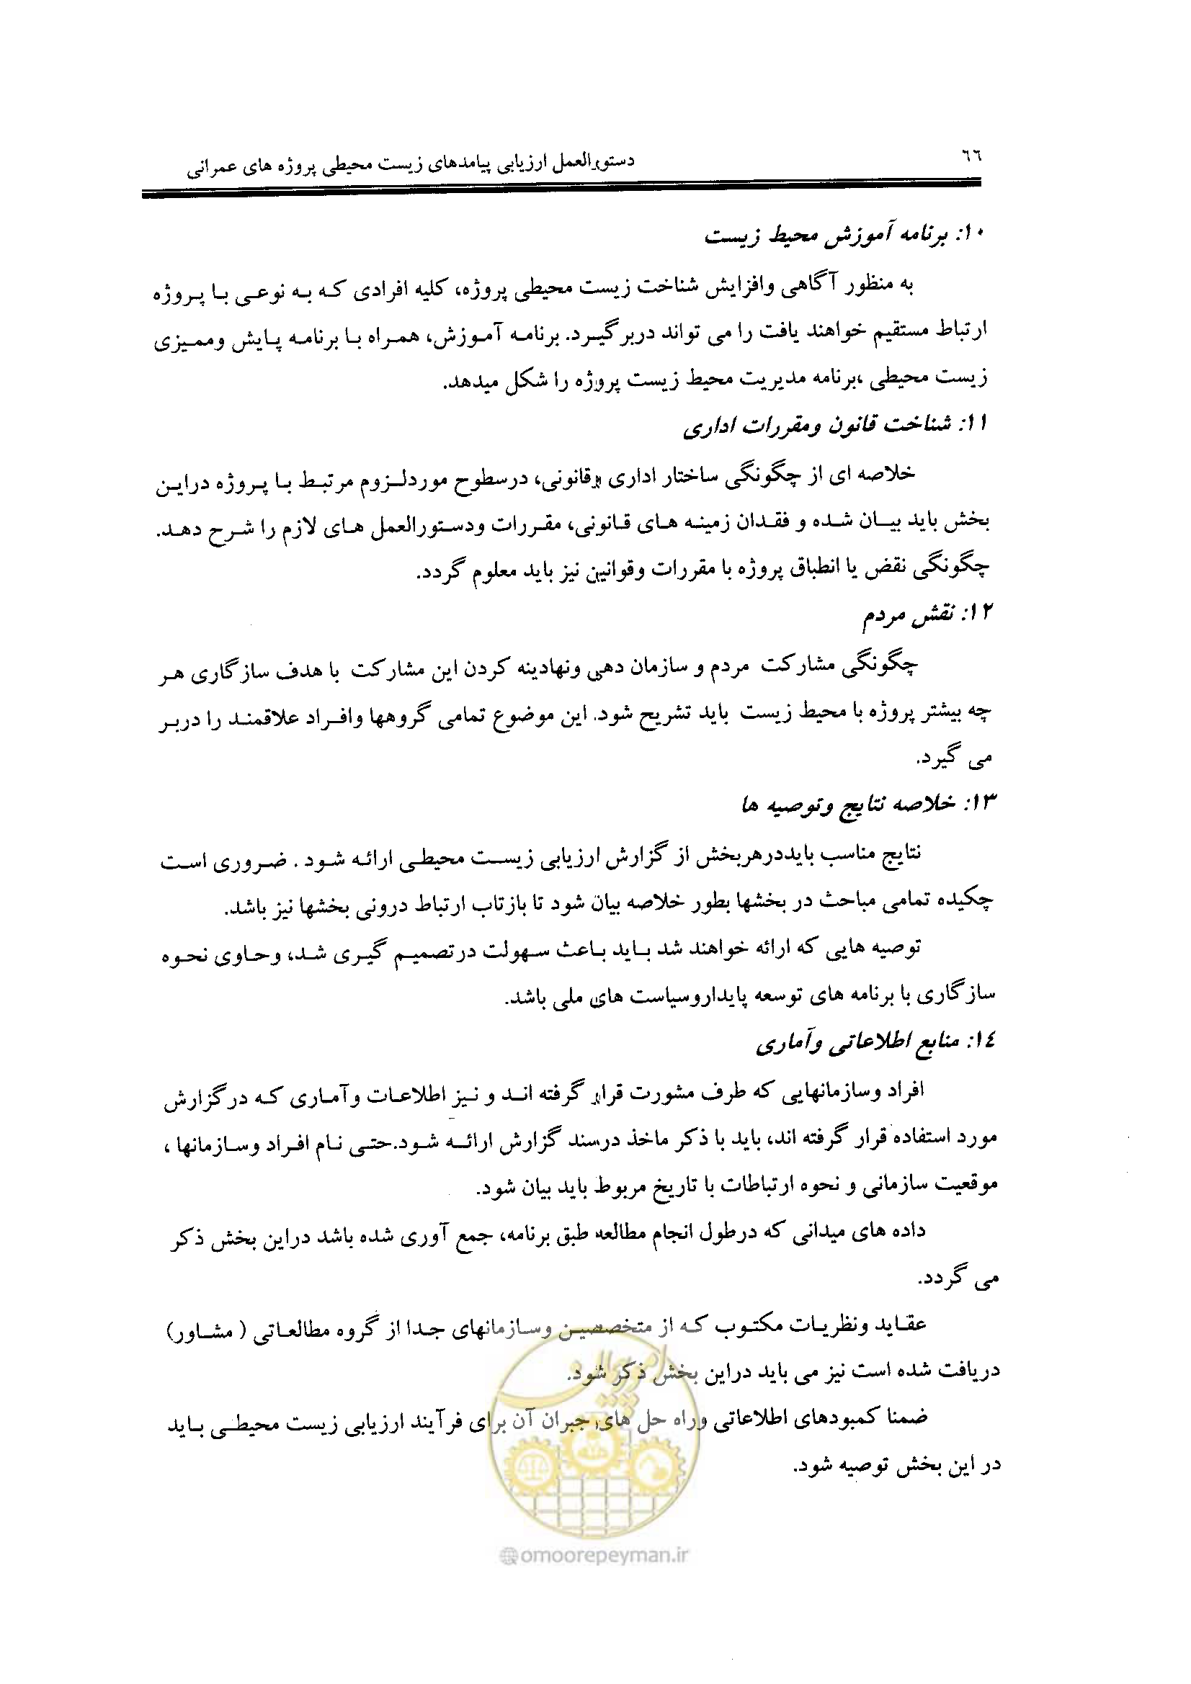 ۶۶
دستورالعمل ارزیابی پیامدهای زیست محیطی پروژه های عمرانی
۱۰: برنامه آموزش محیط زیست
به منظور آگاهی وافزایش شناخت زیست محیطی پروژه، کلیه افرادی که به نوعی با پروژه
ارتباط مستقیم خواهند یافت را می تواند دربرگیرد. برنامه آموزش، همراه با برنامه پایش وممیزی
زیست محیطی ،برنامه مدیریت محیط زیست پروژه را شکل میدهد.
۱۱: شناخت قانون ومقررات اداری
خلاصه ای از چگونگی ساختار اداری وقانونی، درسطوح موردلزوم مرتبط با پروژه دراین
بخش باید بیان شده و فقدان زمینه های قانونی، مقررات ودستورالعمل های لازم را شرح دهد.
چگونگی نقض یا انطباق پروژه با مقررات وقوانین نیز باید معلوم گردد.
۱۲: نقش مردم
چگونگی مشارکت مردم و سازمان دهی ونهادینه کردن این مشارکت با هدف سازگاری هر
چه بیشتر پروژه با محیط زیست باید تشریح شود. این موضوع تمامی گروهها وافراد علاقمند را دربر
می گیرد.
۱۳: خلاصه نتایج وتوصیه ها
نتایج مناسب بایددرهربخش از گزارش ارزیابی زیست محیطی ارائه شود . ضروری است
چکیده تمامی مباحث در بخشها بطور خلاصه بیان شود تا بازتاب ارتباط درونی بخشها نیز باشد.
توصیه هایی که ارائه خواهند شد باید باعث سهولت درتصمیم گیری شد، وحاوی نحوه
سازگاری با برنامه های توسعه پایداروسیاست های ملی باشد.
۱۴: منابع اطلاعاتی وآماری
افراد وسازمانهایی که طرف مشورت قرار گرفته اند و نیز اطلاعات وآماری که درگزارش
مورد استفاده قرار گرفته اند، باید با ذکر ماخذ درسند گزارش ارائه شود.حتی نام افراد وسازمانها ،
موقعیت سازمانی و نحوه ارتباطات با تاریخ مربوط باید بیان شود.
داده های میدانی که درطول انجام مطالعه طبق برنامه، جمع آوری شده باشد دراین بخش ذکر
می گردد.
عقاید ونظریات مکتوب که از متخصصین وسازمانهای جدا از گروه مطالعاتی ( مشاور)
دریافت شده است نیز می باید دراین بخش ذکر شود.
ضمنا کمبودهای اطلاعاتی وراه حل های جبران آن برای فرآیند ارزیابی زیست محیطی باید
در این بخش توصیه شود.
امور پیمان
@omoorepeyman.ir